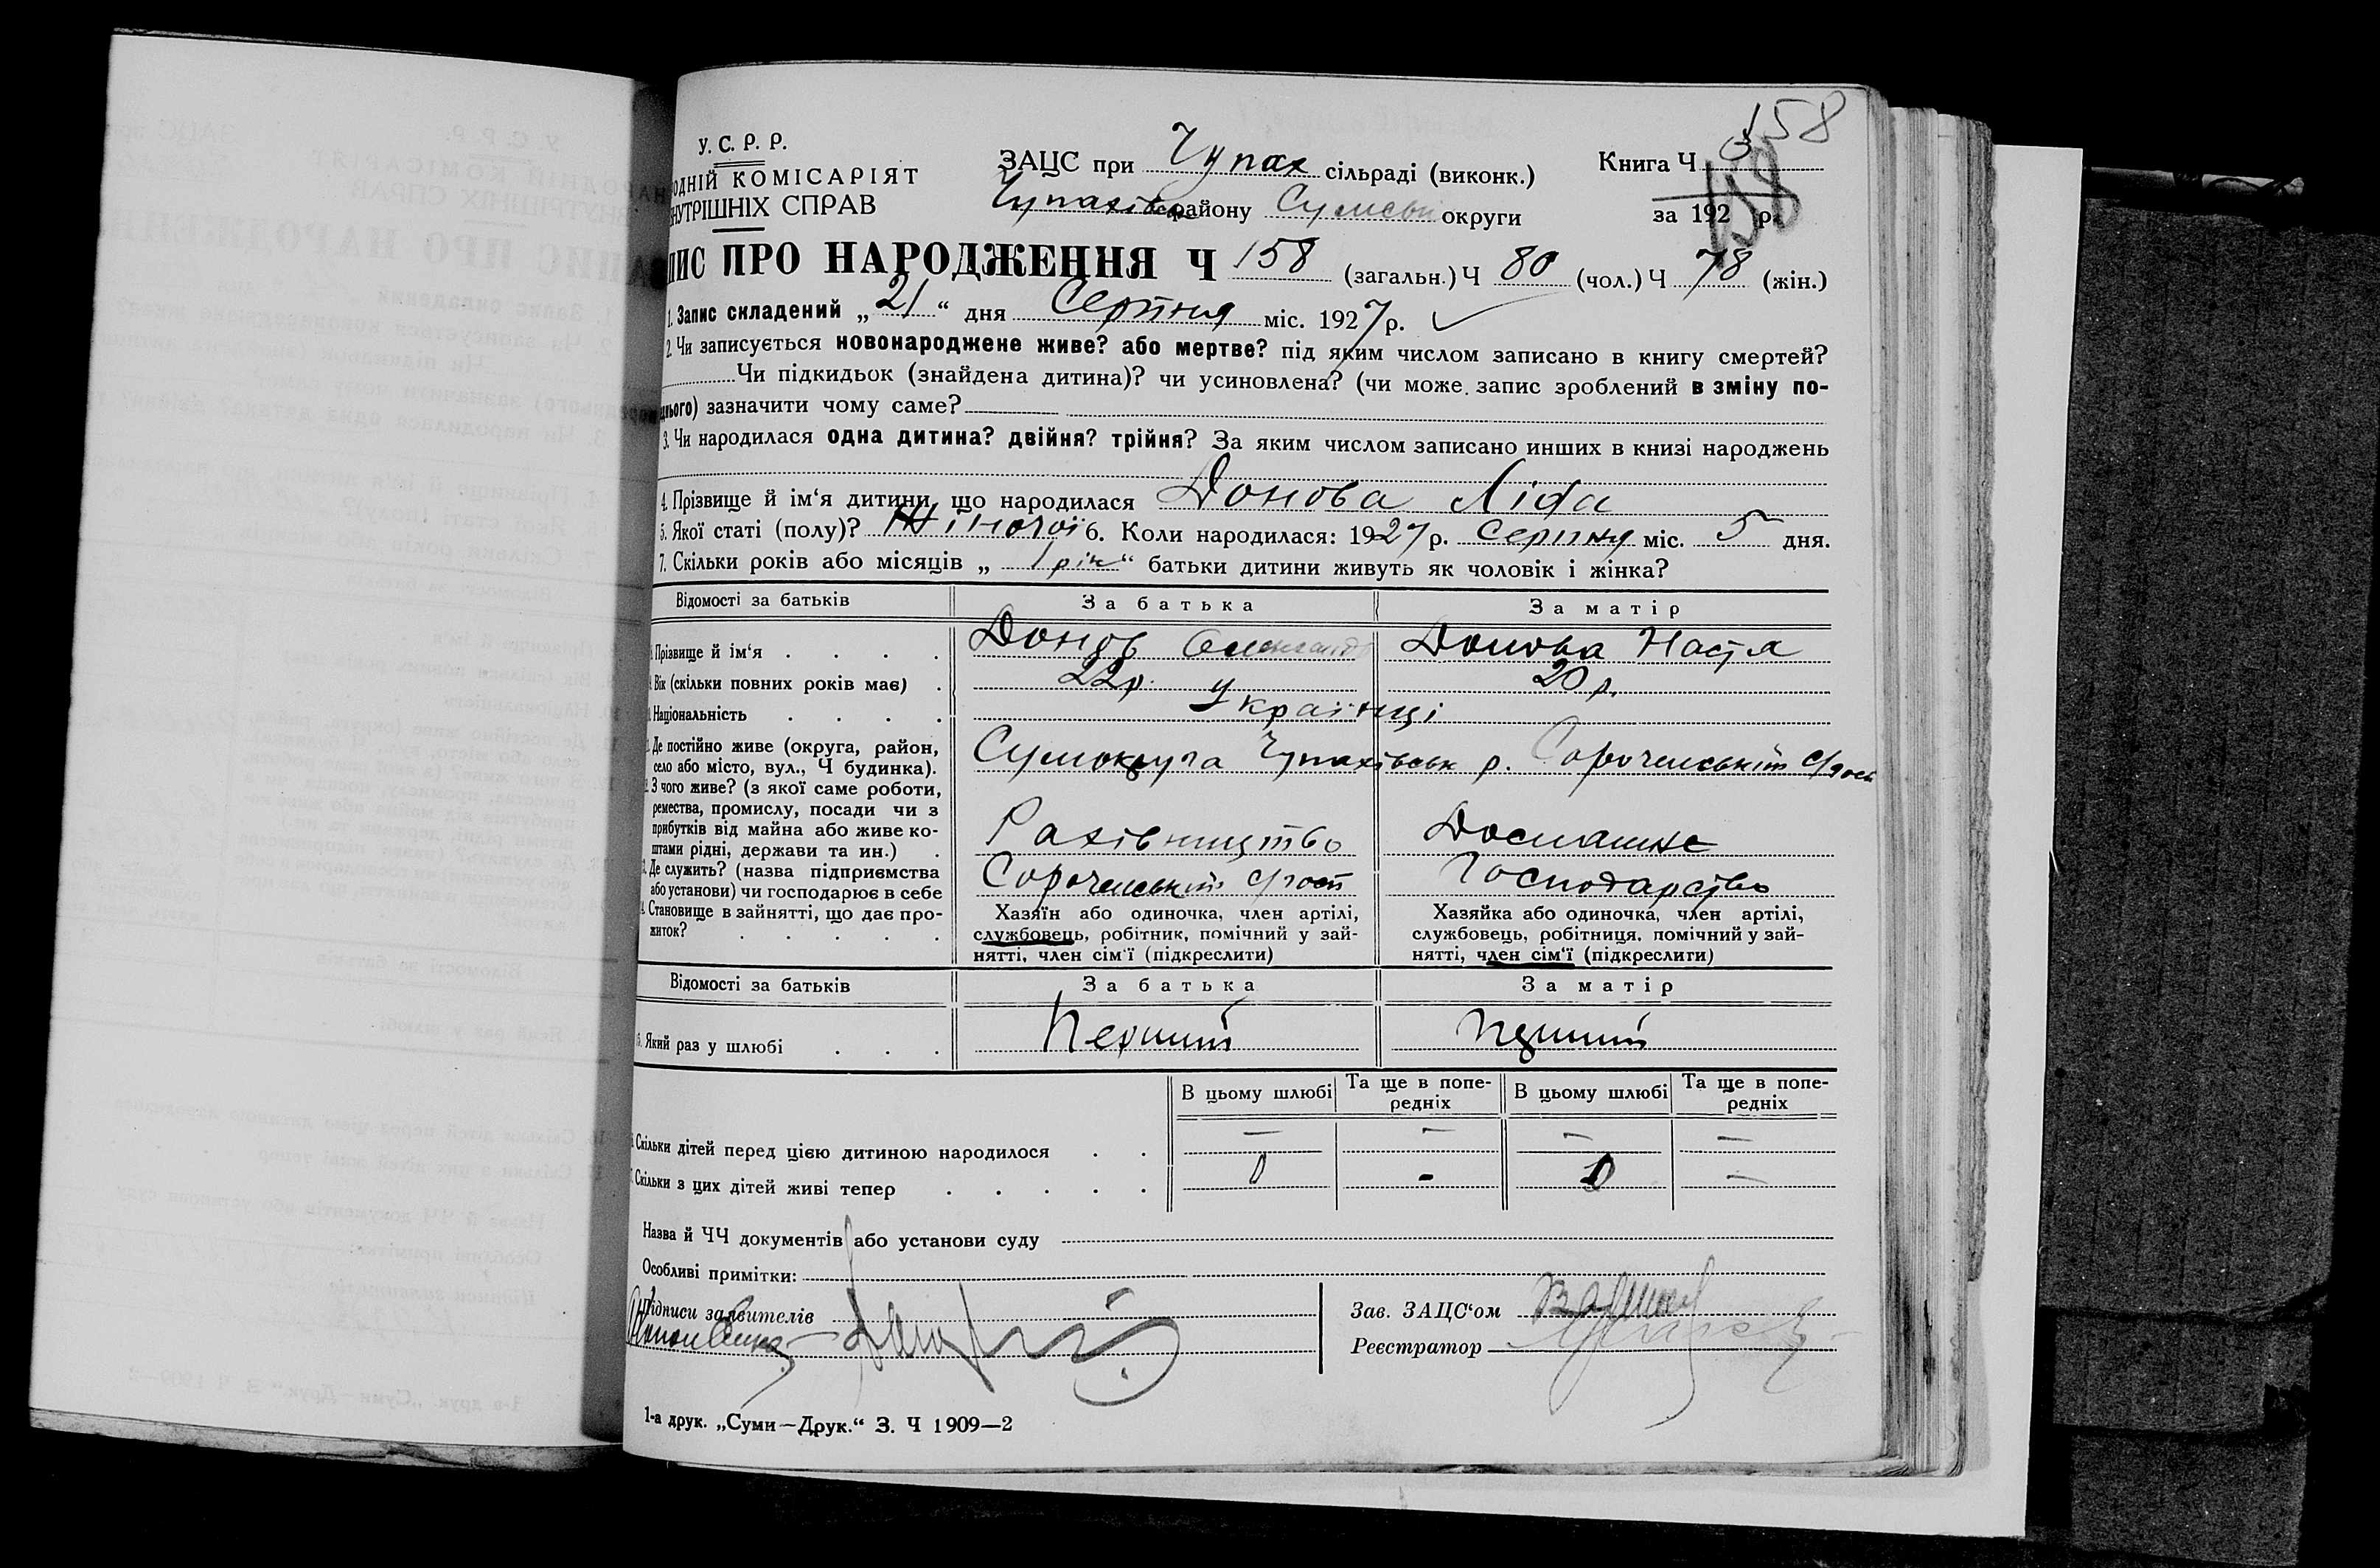 158
У. С. Р. Р.
ОДНІЙ КОМІСАРІЯТ
НУТРІШНІХ СПРАВ
ЗАЦС при Чупах сільраді (виконк.)
Книга Ч
Чупахівськ району Сумськ округи
за 192 р.
158
ПИС ПРО НАРОДЖЕННЯ Ч 158 (загальн.) Ч 80 (чол.) Ч 78 (жін.)
1. Запис складений „21“ дня Серпня міс. 1927 р.
2. Чи записується новонароджене живе? або мертве? під яким числом записано в книгу смертей?
Чи підкидьок (знайдена дитина)? чи усиновлена? (чи може запис зроблений в зміну по-
днього) зазначити чому саме?
3. Чи народилася одна дитина? двійня? трійня? За яким числом записано инших в книзі народжень
4. Прізвище й ім‘я дитини, що народилася Донова Ліда
5. Якої статі (полу)? Жіночої 6. Коли народилася: 1927 р. Серпня міс. 5 дня.
7. Скільки років або місяців „1 рік“ батьки дитини живуть як чоловік і жінка?
Відомості за батьків За батька За матір
Прізвище й ім‘я Донов Олександр Донова Настя
Вік (скільки повних років має) 22 р. 20 р.
Національність Українці
Де постійно живе (округа, район,
село або місто, вул., Ч будинка). Сумокруга Чупахівськ р.
З чого живе? (з якої саме роботи,
ремества, промислу, посади чи з
прибутків від майна або живе ко-
штами рідні, держави та ин.) Рахівництво Домашнє
Де служить? (назва підприємства
або установи) чи господарює в себе Господарство
Становище в зайнятті, що дає про-
житок?
Хазяїн або одиночка, член артілі,
службовець, робітник, помічний у зай-
нятті, член сім‘ї (підкреслити)
Хазяйка або одиночка, член артілі,
службовець, робітниця, помічний у зай-
нятті, член сім‘ї (підкреслити)
Відомості за батьків За батька За матір
Який раз у шлюбі Перший Перший
В цьому шлюбі Та ще в попе-
редніх В цьому шлюбі Та ще в попе-
редніх
Скільки дітей перед цією дитиною народилося — — — —
Скільки з цих дітей живі тепер 0 - 0 —
Назва й ЧЧ документів або установи суду
Особливі примітки:
Підписи заявителів
Зав. ЗАЦС‘ом
Реєстратор
1-а друк. „Суми—Друк.“ З. Ч 1909—2